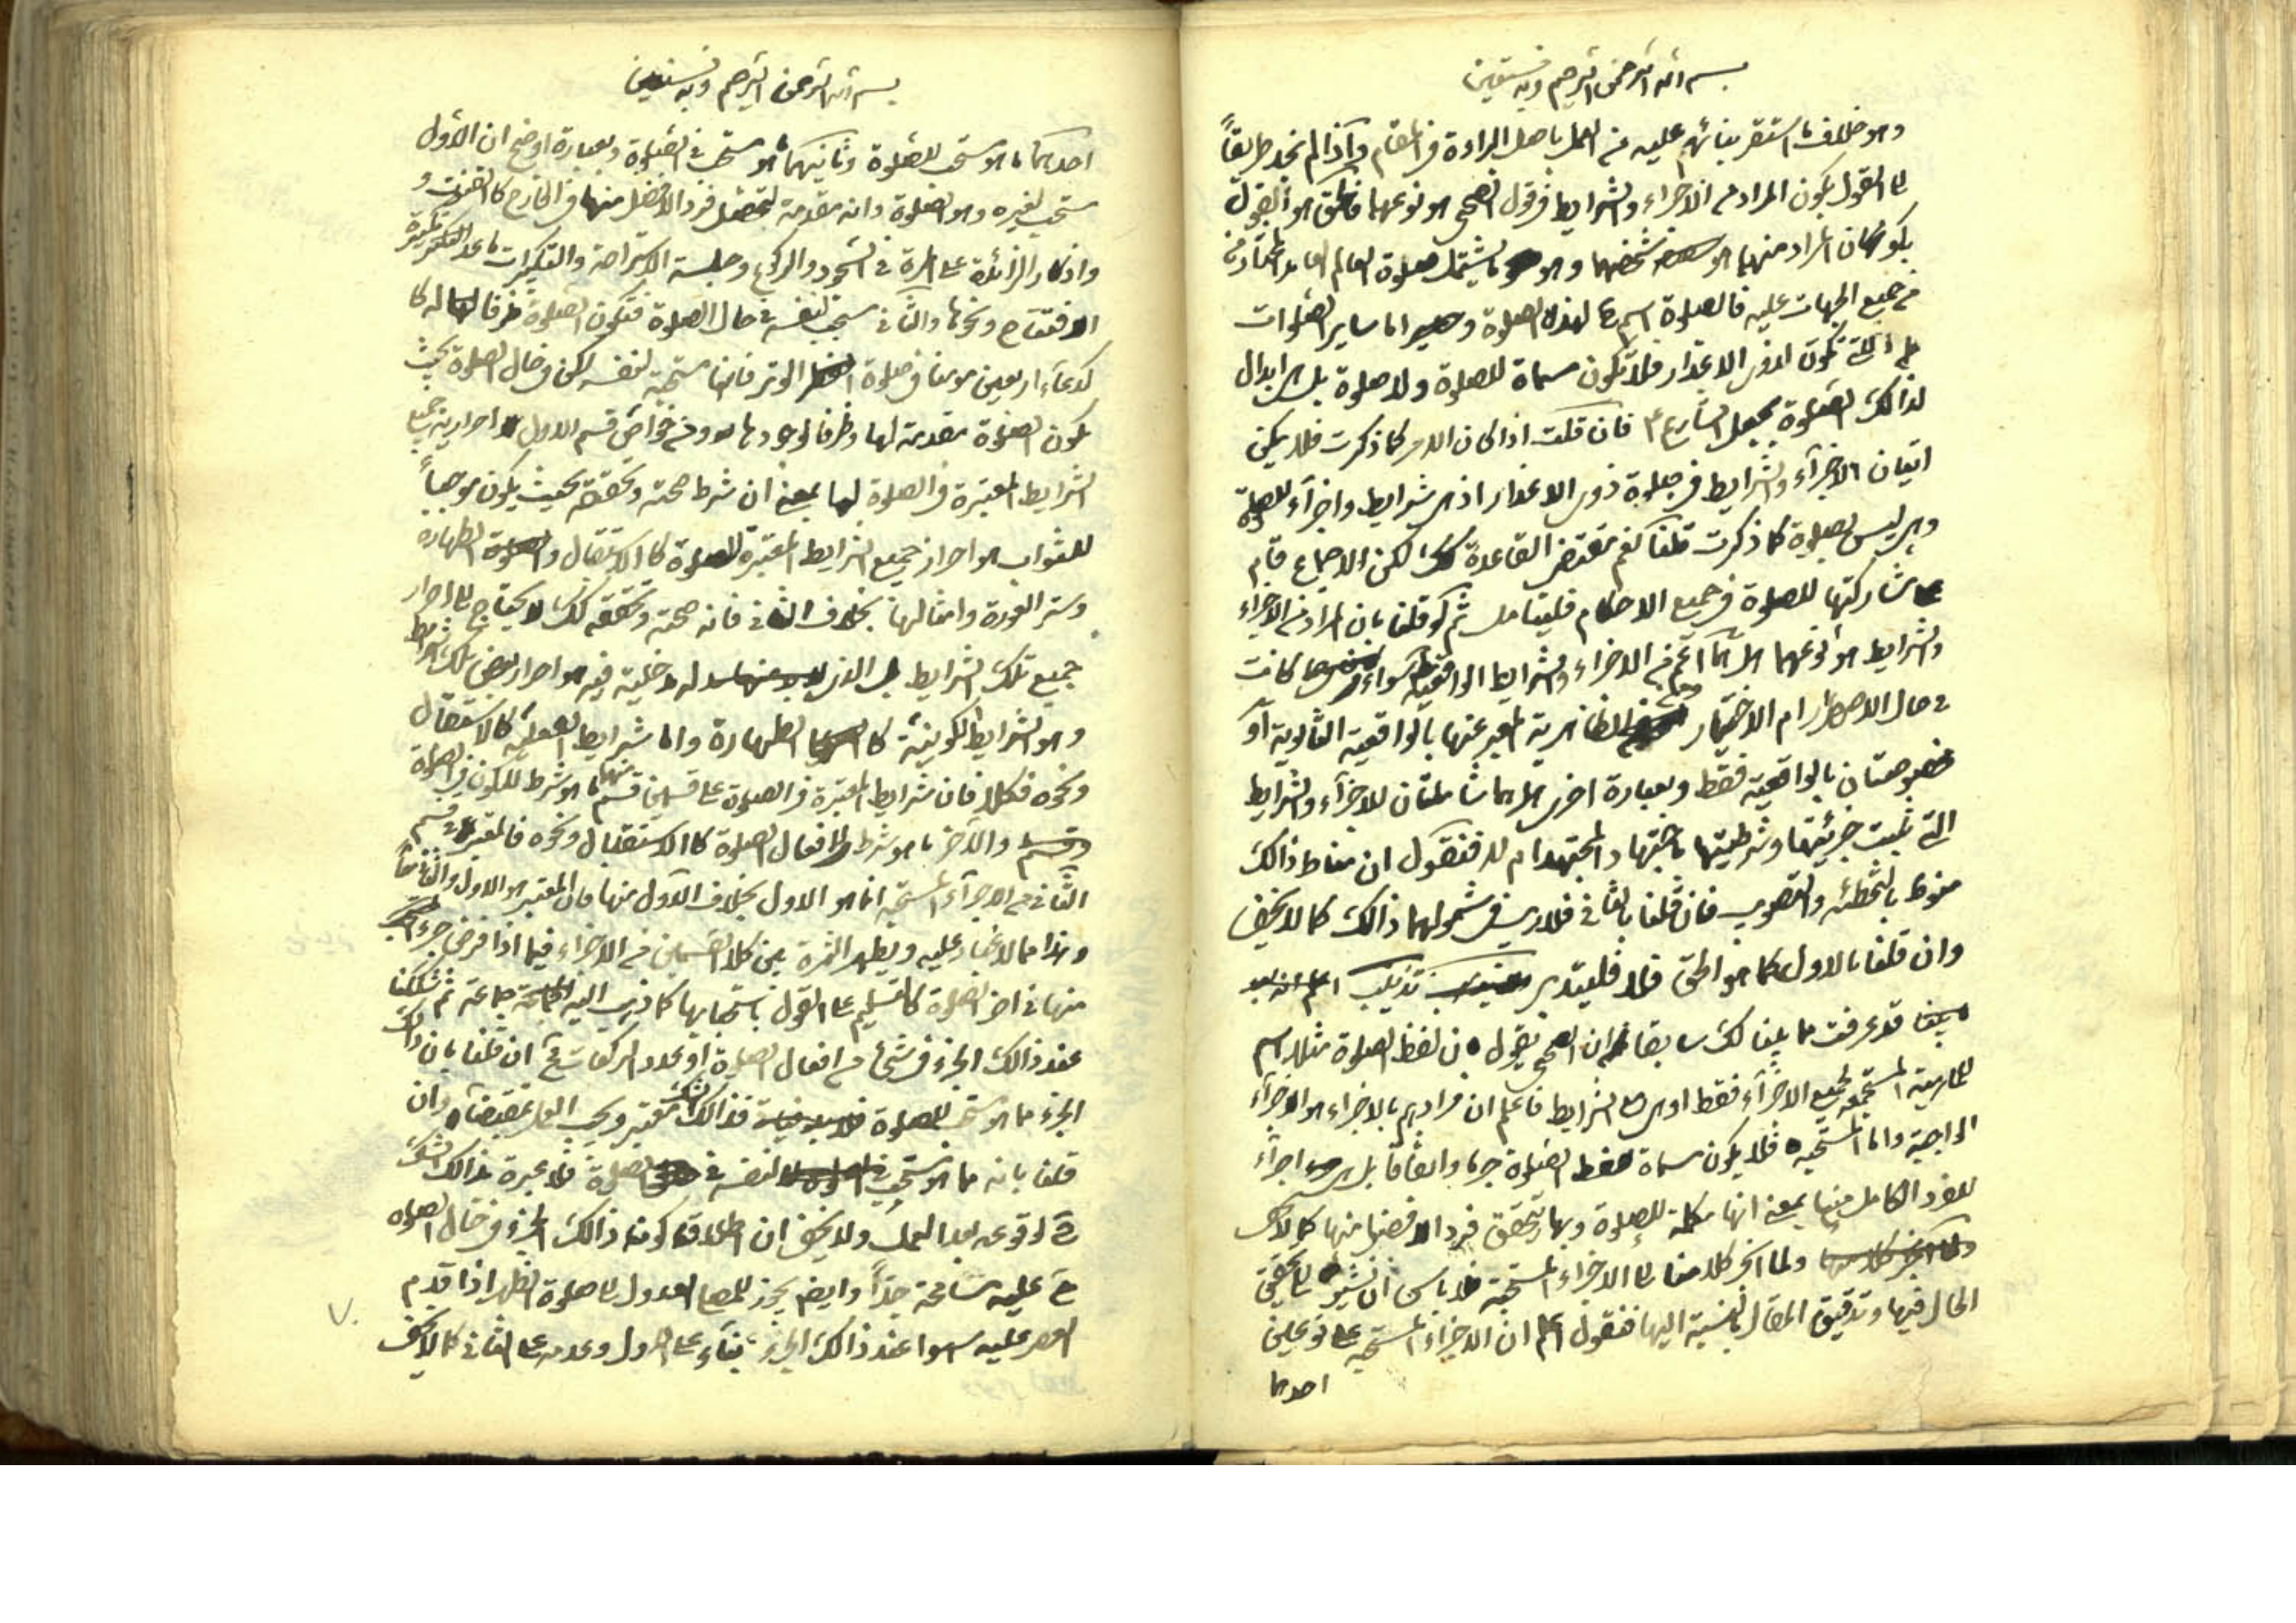 بسم الله الرحمن الرحيم وبه نستعين
وهو خلاف ما استقر بنائهم عليه من العمل باصل البراءة في المقام واذا لم نجد طريقاً
الى القول بكون المراد من الاجزاء والشرايط في قول الصحيحي هو نوعهما فالحق هو القول
بكون المراد منهما هو شخصهما وهو ما يشتمل صلوة العالم العامد المختار
من جميع الجهات عليه فالصلوة اسم لهذه الصلوة واما ساير الصلوات
التي تكون لذوى الاعذار فلا تكون مسماة للصلوة ولا صلوة بل هى ابدال
لذالك الصلوة بجعل الشارع فان قلت اذا كان الامر كما ذكرت فلا يمكن
اتيان الاجزآء والشرايط في صلوة ذوى الاعذار اذ هى شرايط واجزآء للصلوة
وهى ليس بصلوة كما ذكرت قلنا نعم مقتضى القاعدة كك لكن الاجماع قام
على مشاركتها للصلوة في جميع الاحكام فليتامل ثم لو قلنا بان المراد من الاجزاء
والشرايط هو نوعهما هل هما اعم من الاجزاء والشرايط الواقعية سواء كانت
في حال الاضطرار ام الاختيار الظاهرية المعبر عنها بالواقعية الثانوية او
مخصوصتان بالواقعية فقط وبعبارة اخرى هل هما شاملتان للاجزآء والشرايط
التي ثبتت جزئيتها وشرطيتها باجتهاد المجتهد ام لا فنقول ان مناط ذالك
منوط بالتخطئه والتصويب فان قلنا بالثاني فلا ريب في شمولهما ذالك كما لا يخفى
وان قلنا بالاول كما هو الحق فلا فليتدبر تذنيب اعلم انه بعد
قد عرفت مما بينا لك سابقا ان الصحيحي يقول بان لفظ الصلوة مثلا اسم
للماهية المستجمعه لجميع الاجزآء فقط او هى مع الشرايط فاعلم ان مرادهم بالاجزاء هو الاجزآء
الواجبة واما المستحبه فلا يكون مسماة لفظ الصلوة جزما واتفاقا بل هى اجزآء
للفرد الكامل منها بمعنى انها مكملة للصلوة وبها يتحقق فرد الافضل منها كما لا يخفى
ولما انجر كلامنا الى الاجزاء المستحبة فلا باس ان نشير الى تحقيق
الحال فيها وتدقيق المقال بالنسبة اليها فنقول اعلم ان الاجزاء المستحبه على نوعين
احدهما
بسم الله الرحمن الرحيم وبه نستعين
احدهما ما هو مستحب للصلوة وثانيهما ما هو مستحب في الصلوة وبعبارة اوضح ان الاول
مستحب لغيره وهو الصلوة وانه مقدمة لتحصيل فرد الافضل منها في الخارج كالقنوت و
واذكار الزائدة على المرة في السجود والركوع وجلسة الاستراحة والتكبيرات ما عدا التكبيرة
الافتتاح ونحوها والثاني مستحب لنفسه في حال الصلوة فتكون الصلوة ظرفا له كا
كدعآء اربعين مومنا في صلوة الوتر فانها مستحبة لنفسه لكن في حال الصلوة بحيث
يكون الصلوة مقدمة لها وظرفا لوجودها ومن خواص قسم الاول احراز جميع
الشرايط المعتبرة في الصلوة لها بمعنى ان شرط صحته وتحققه بحيث يكون موجباً
للثواب هو احراز جميع الشرايط المعتبرة للصلوة كالاستقبال والطهارة
وستر العورة وامثالها بخلاف الثاني فانه صحته وتحققه كك لا يحتاج الى احراز
جميع تلك الشرايط بل الذى له مدخلية فيه هو احراز بعض تلك الشرايط
وهو الشرايط الكونية كالطهارة واما شرايط الفعلية كالاستقبال
ونحوه فكلا فان شرايط المعتبرة في الصلوة على قسمين قسم منها ما هو شرط للكون في الصلوة
والآخر ما هو شرط لافعال الصلوة كالاستقبال ونحوه فالمعتبر في قسم
الثاني من الاجزآء المستحبه انما هو الاول بخلاف الاول منها فان المعتبر هو الاول والثاني معاً
وهذا مما لا غبار عليه ويظهر الثمرة بين كلا القسمين من الاجزاء فيما اذا فرض جزء
منها في اخر الصلوة كالتسليم على القول باستحبابها كما ذهب اليه جماعة ثم شككنا
عند ذالك الجزء في شئ من افعال الصلوة او عدد الركعات فح ان قلنا بان ذالك
الجزء مما هو مستحب للصلوة فذالك الشك معتبر ويجب العمل بمقتضاه وان
قلنا بانه مما هو مستحب لنفسه في الصلوة فلا عبرة بذالك الشك
ح لوقوعه بعد العمل ولا يخفى ان اطلاق كون ذالك الجزء في حال الصلوه
ح عليه مسامحة جدّاً وايضا يجوز للمصلى العدول الى صلوة الظهر اذا قدم
العصر عليه سهوا عند ذالك الجزء بنآء على الاول وعدمه على الثاني كما لا يخفى